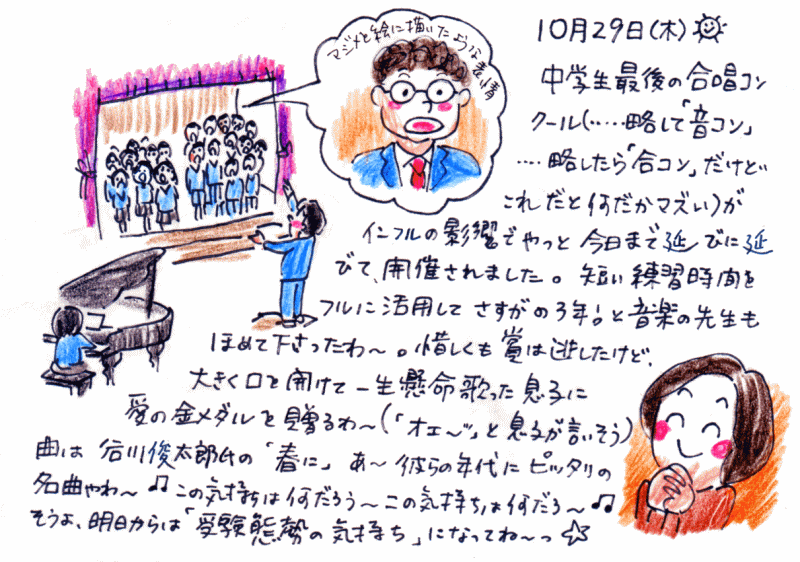 マジメを絵に描いたような表情
10月29日(木)
中学生最後の合唱コン
クール(‥‥略して「音コン」
‥‥略したら「合コン」だけど
これだと何だかマズい)が
インフルの影響でやっと今日まで延びに延
びて、開催されました。短い練習時間を
フルに活用してさすがの3年!と音楽の先生も
ほめて下さったわ〜。惜しくも賞は逃したけど、
大きく口を開けて一生懸命歌った息子に
愛の金メダルを贈るわ〜(「オエ〜ッ」と息子が言いそう)
曲は谷川俊太郎氏の「春に」あ〜彼らの年代にピッタリの
名曲やわ〜♫この気持ちは何だろう〜この気持ちは何だろ〜♫
そうよ、明日からは「受験態勢の気持ち」になってね〜っ☆